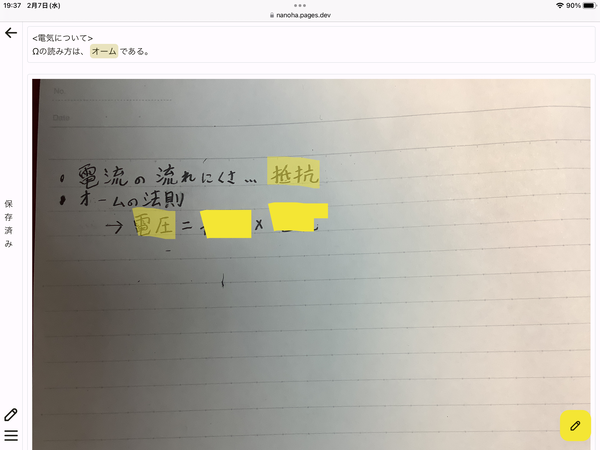 19:37 2月7日(水)
90%
nanoha.pages.dev
<電気について>
Ωの読み方は、オームである。
保存済み
No.
Date
・電流の流れにくさ… 抵抗
・オームの法則
→ 電圧 = ×